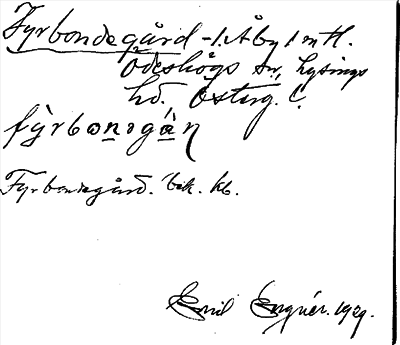 Fyrbondegård - i Åby 1 mtl.
Ödeshögs sn, Lysings
hd. Österg.
fỳrbonɘgàṉ
Fyrbondegård. bok. kb.
Emil Engnér. 1929.